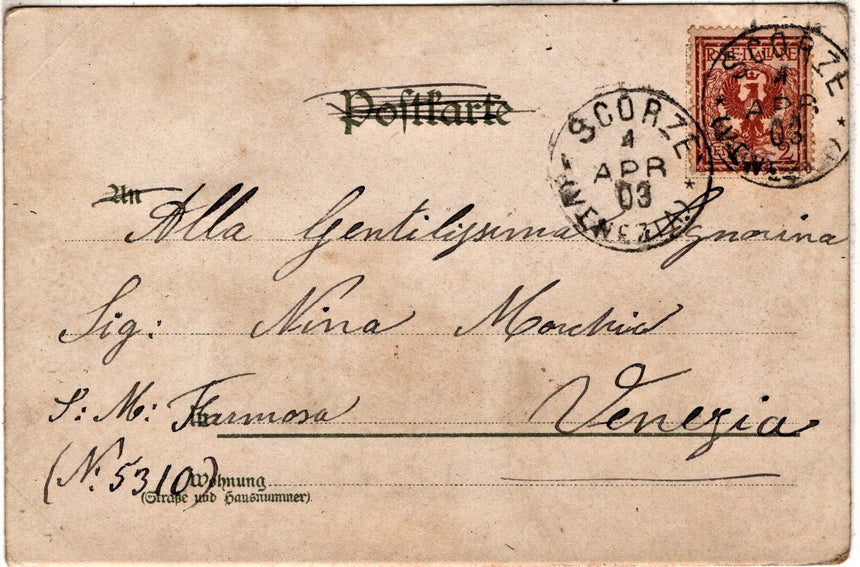 Postkarte
R.R. POSTE ITALIANE
2
SCORZÈ
4
APR
03
(VENEZIA)
SCORZÈ
4
APR
03
(VENEZIA)
An
Alla Gentilissima Signorina
Sig: Nina
S: M: Formosa Venezia
(N. 5310)
Wohnung
(Straße und Hausnummer).